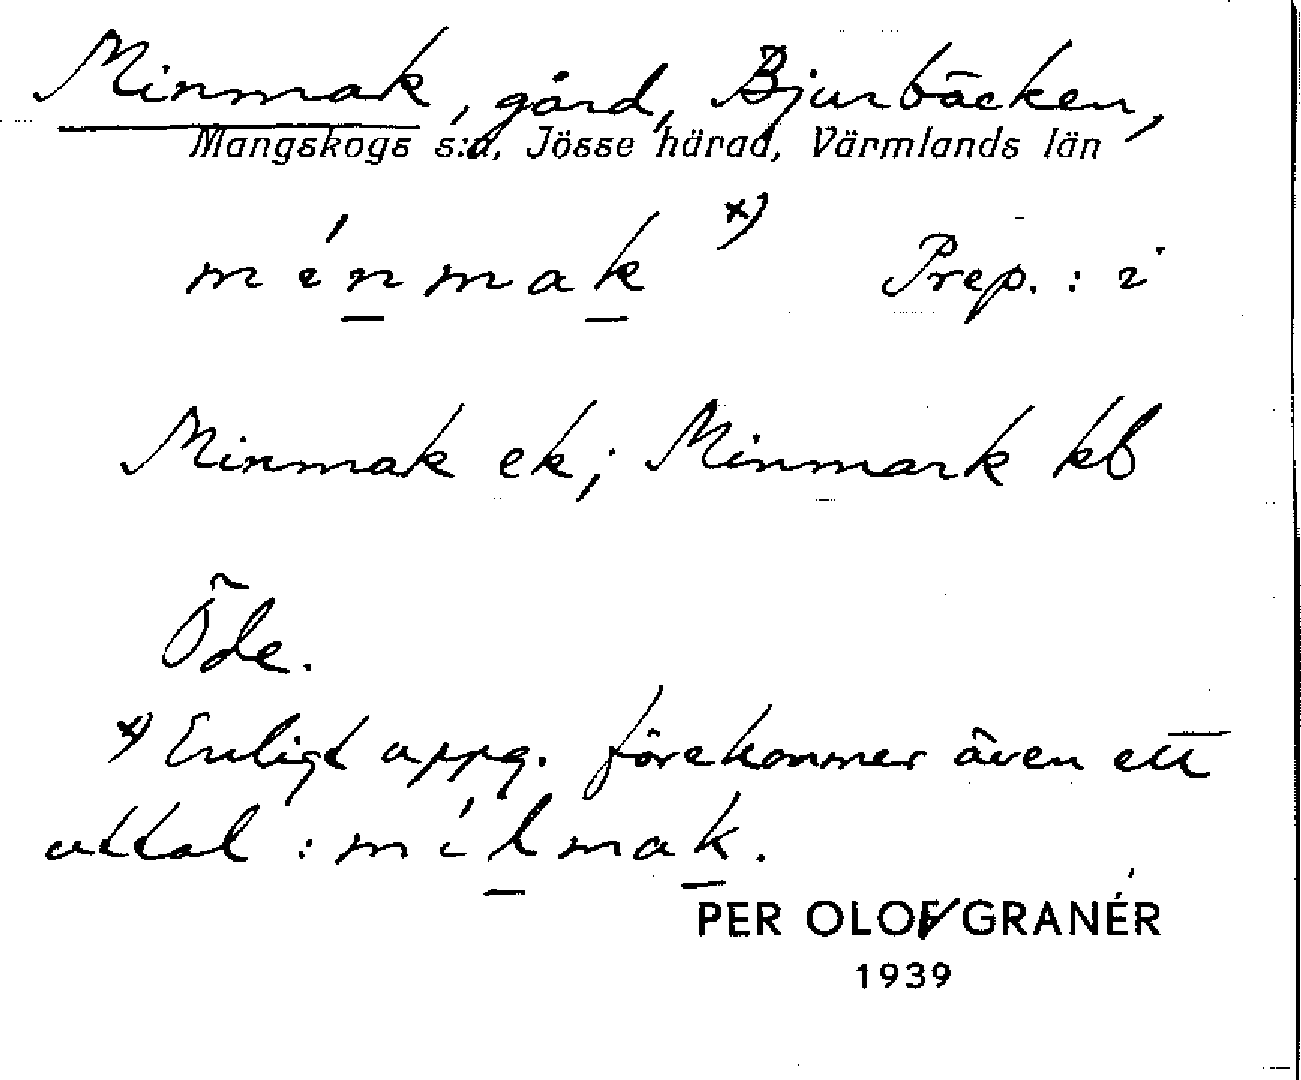 Minmak, gård, Bjurbäcken,
Mangskogs s:n, Jösse härad, Värmlands län
ménmak x) Prep.: i
Minmak ek; Minmark kb
Öde.
x) Enligt uppg. förekommer även ett
uttal: mílmak.
PER OLOF GRANÉR
1939